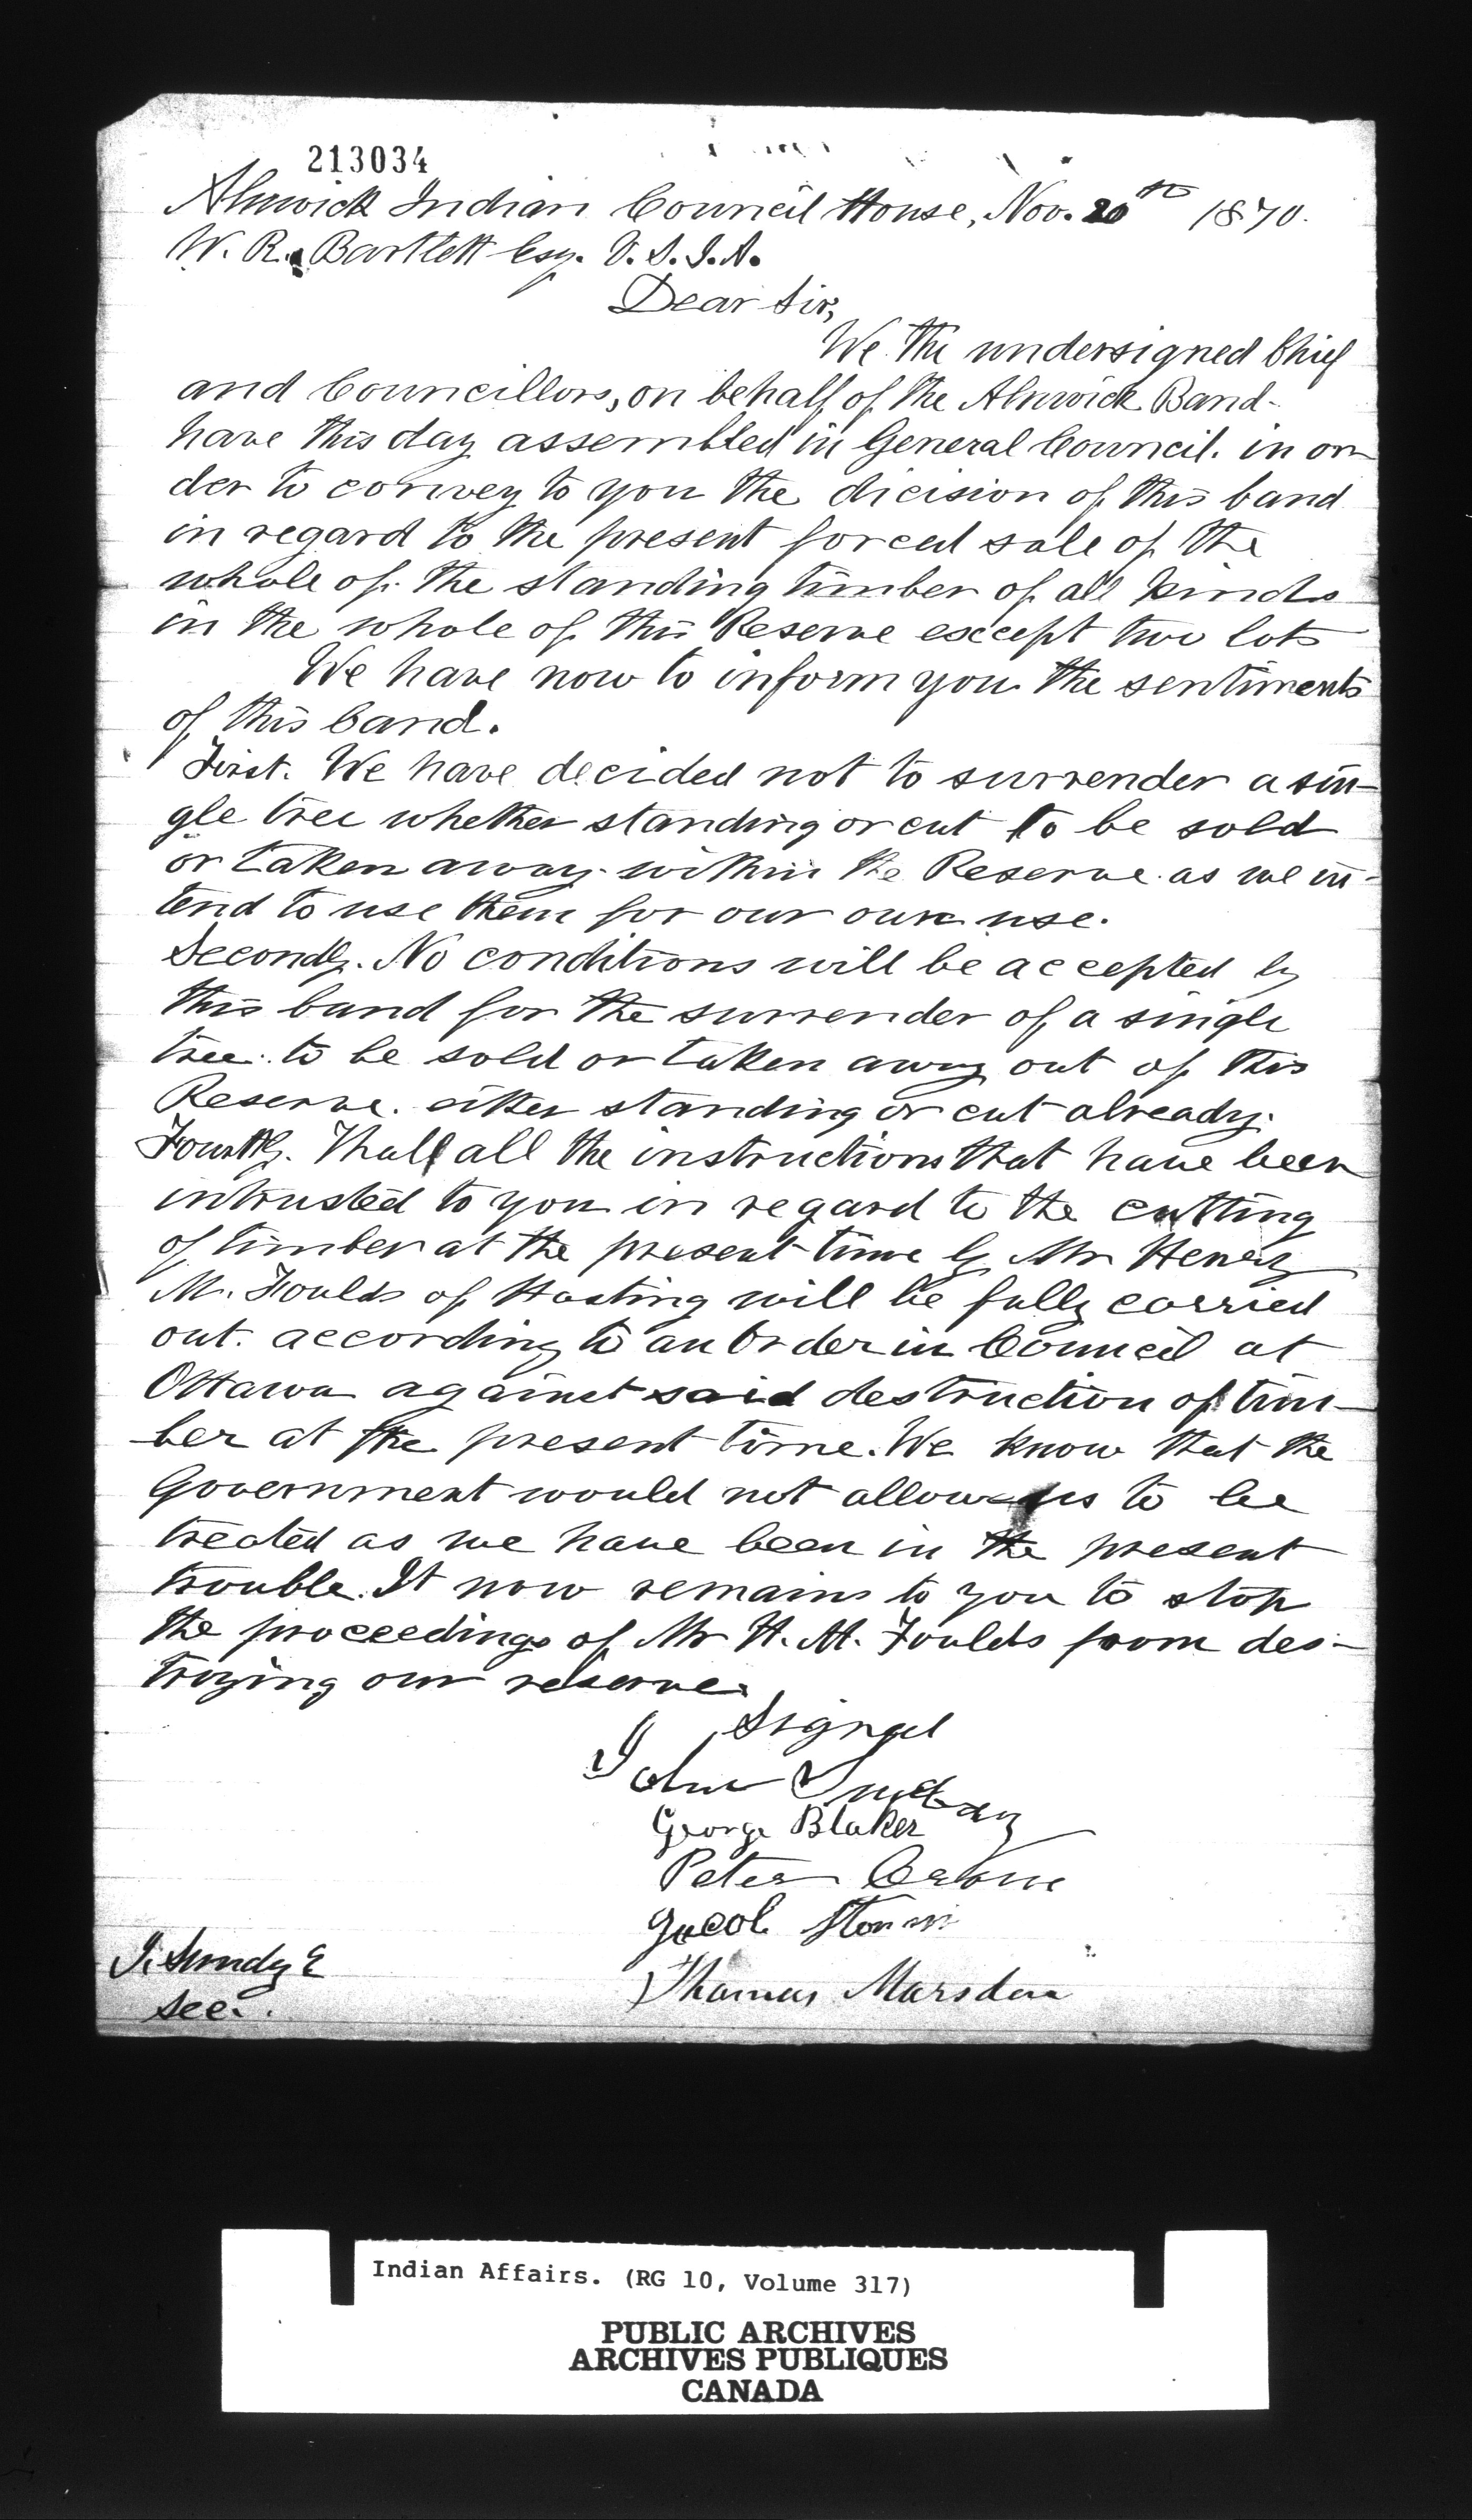 213034
Alnwick Indian Council House, Nov. 20th 1870.
W. R. Bartlett Esq. V. S. I. A.
Dear Sir,
We the undersigned Chief
and Councillors, on behalf of the Alnwick Band
have this day assembled in General Council. in or-
der to convey to you the dicision of this band
in regard to the present forced sale of the
whole of the standing timber of all kinds
in the whole of this Reserve except two lots
We have now to inform you the sentiments
of this band.
First. We have decided not to surrender a sin-
gle tree whether standing or cut to be sold
or taken away within the Reserve as we in-
tend to use them for our own use.
Secondly. No conditions will be accepted by
this band for the surrender of a single
tree to be sold or taken away out of this
Reserve. either standing or cut already.
Fourthly. That all the instructions that have been
intrusted to you in regard to the cutting
of timber at the present time by Mr Henry
M. Foulds of Hasting will be fully carried
out. according to an Order in Council at
Ottawa against said destruction of tim-
ber at the present time. We know that the
Government would not allow us to be
treated as we have been in the present
trouble. It now remains to you to stop
the proceedings of Mr H. M. Foulds from des-
troying our reserve.
Signed
John
George Blaker
Peter Crowe
Jacob Storm
J. Sunday
Sec.
Thomas Marsden
Indian Affairs. (RG 10, Volume 317)
PUBLIC ARCHIVES
ARCHIVES PUBLIQUES
CANADA